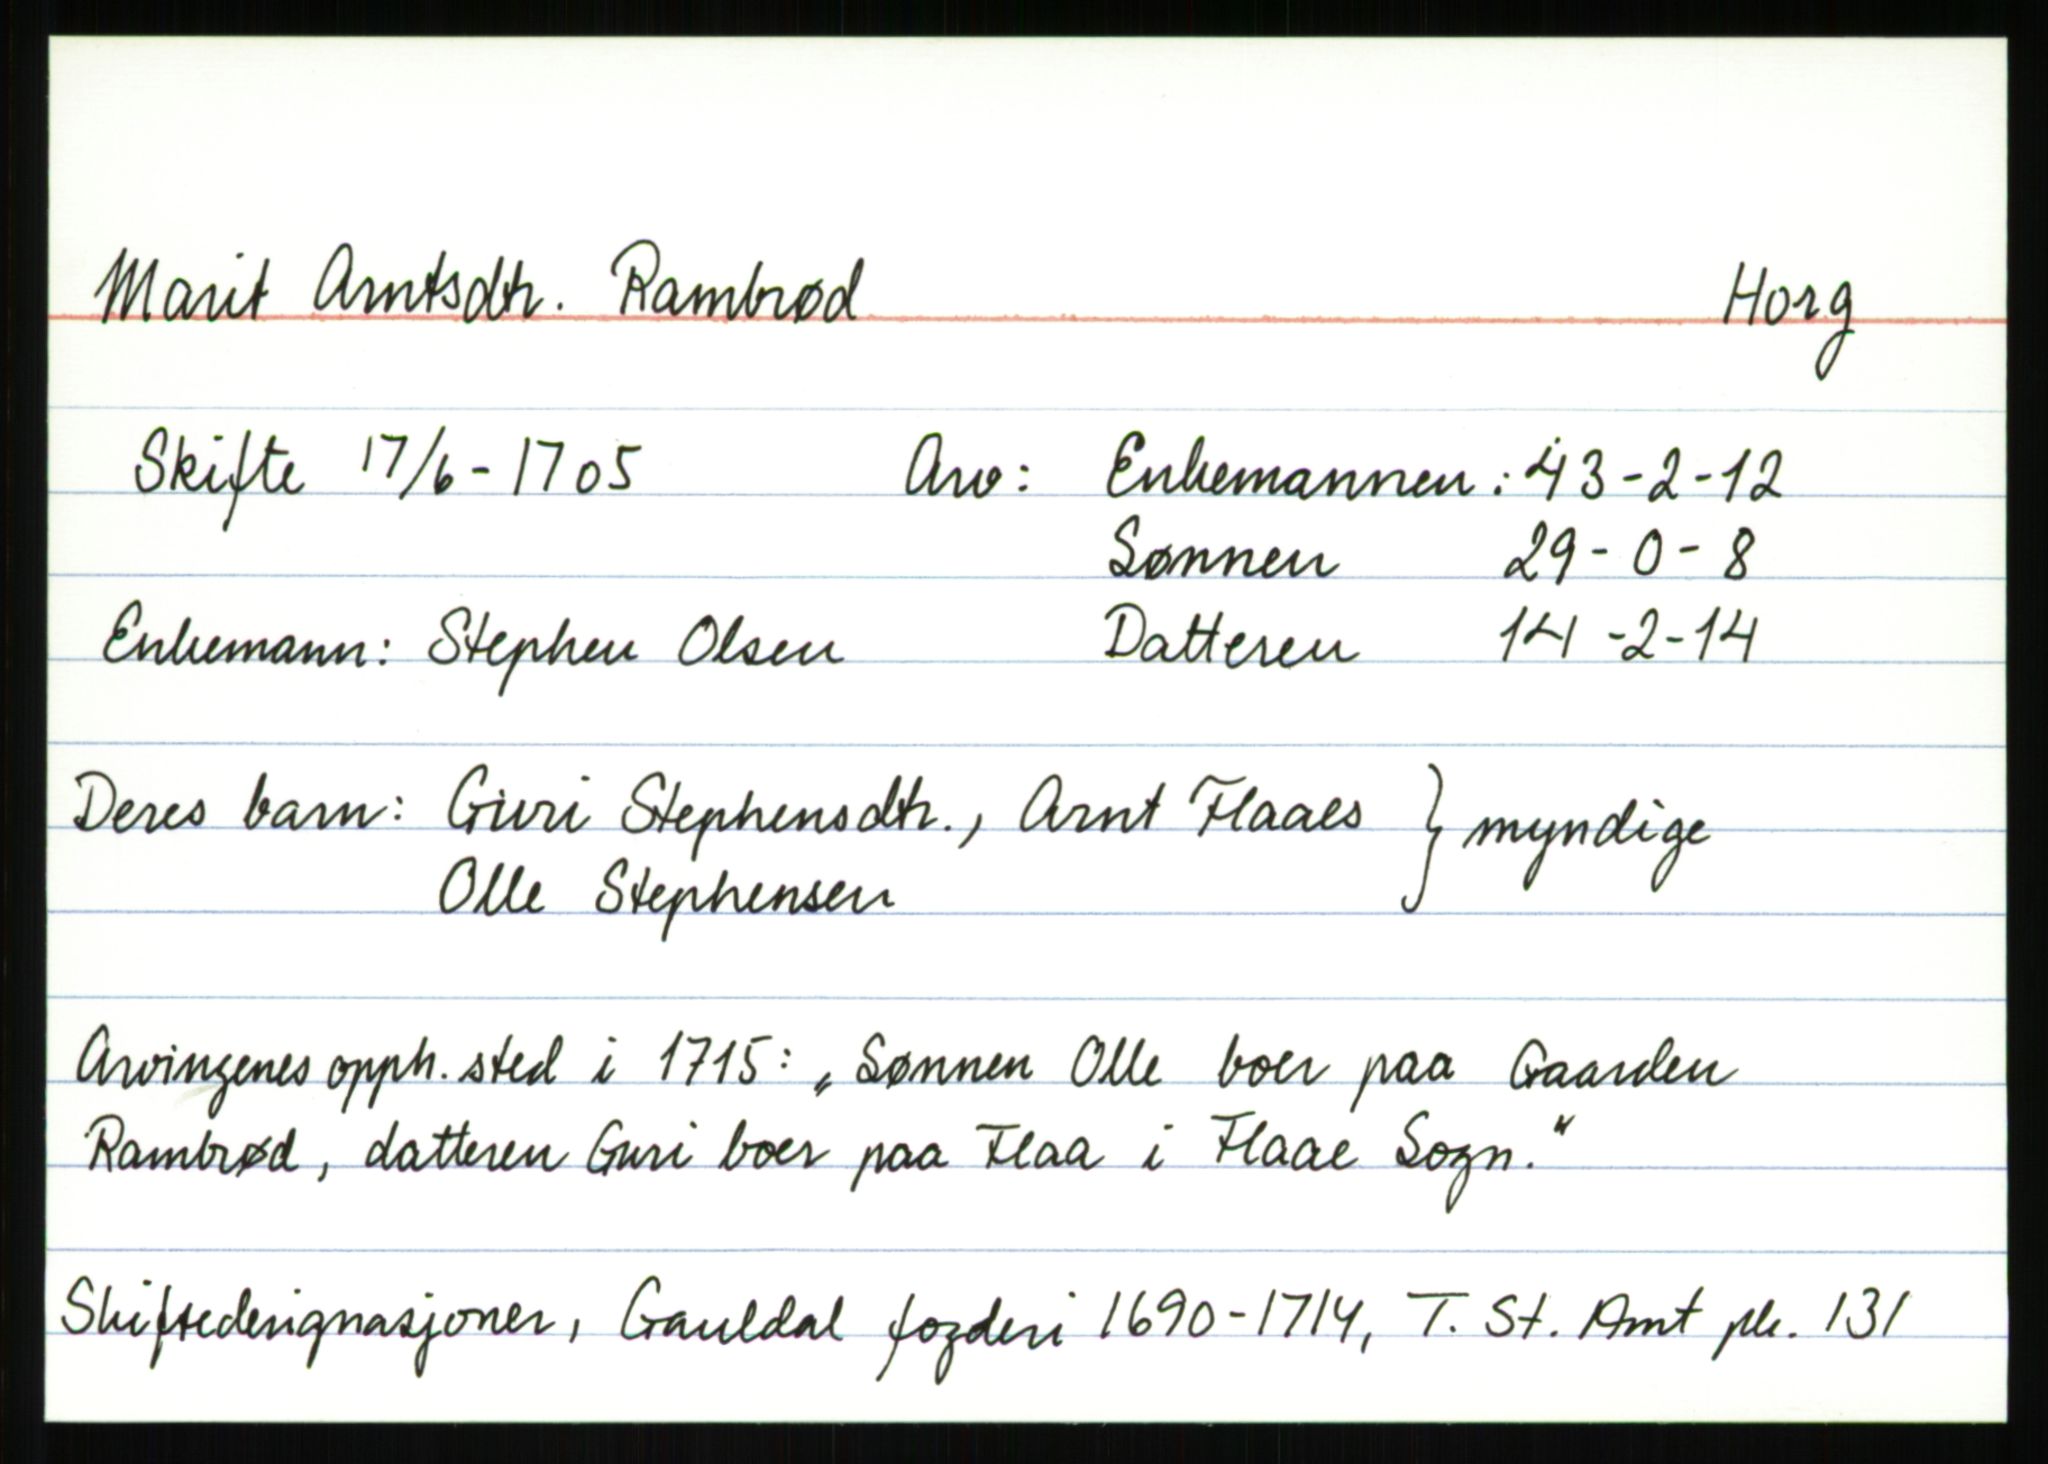 Marit Arntsdtr. Rambrød Horg
Skifte 17/6-1705 Arv: Enkemannen: 43-2-12
Sønnen 29-0-8
Enkemann: Stephen Olsen Datteren 14-2-14
Deres barn: Guri Stephensdtr., Arnt Flaaes } myndige
Olle Stephensen
Arvingenes opph. sted i 1715: „Sønnen Olle boer paa Gaarden
Rambrød, datteren Guri boer paa Flaa i Flaae Sogn.“
Skiftedesignasjoner, Gauldal fogderi 1690-1714, T. St. Amt pk. 131